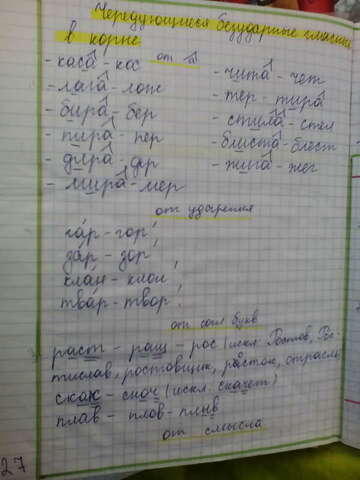 Чередующиеся безударные гласные
в корне
от -а̂-
- каса̂ - кос
- лага̂ - лож
- бира̂ - бер
- пира̂ - пер
- дира̂ - др
- мира̂ - мер
- чита̂ - чет
- тер - тира̂
- стила̂ - стел
- блиста̂ - блест
- жига̂ - жег
от ударения
га́р - гор
за́р - зор
клан - клон
твар - твор
от согл букв
раст - ращ - рос (искл. Ростов, Рос-
тислав, ростовщик, росток, отрасль
скак - скоч (искл. скачет)
плав - плов - плыв
от смысла
27